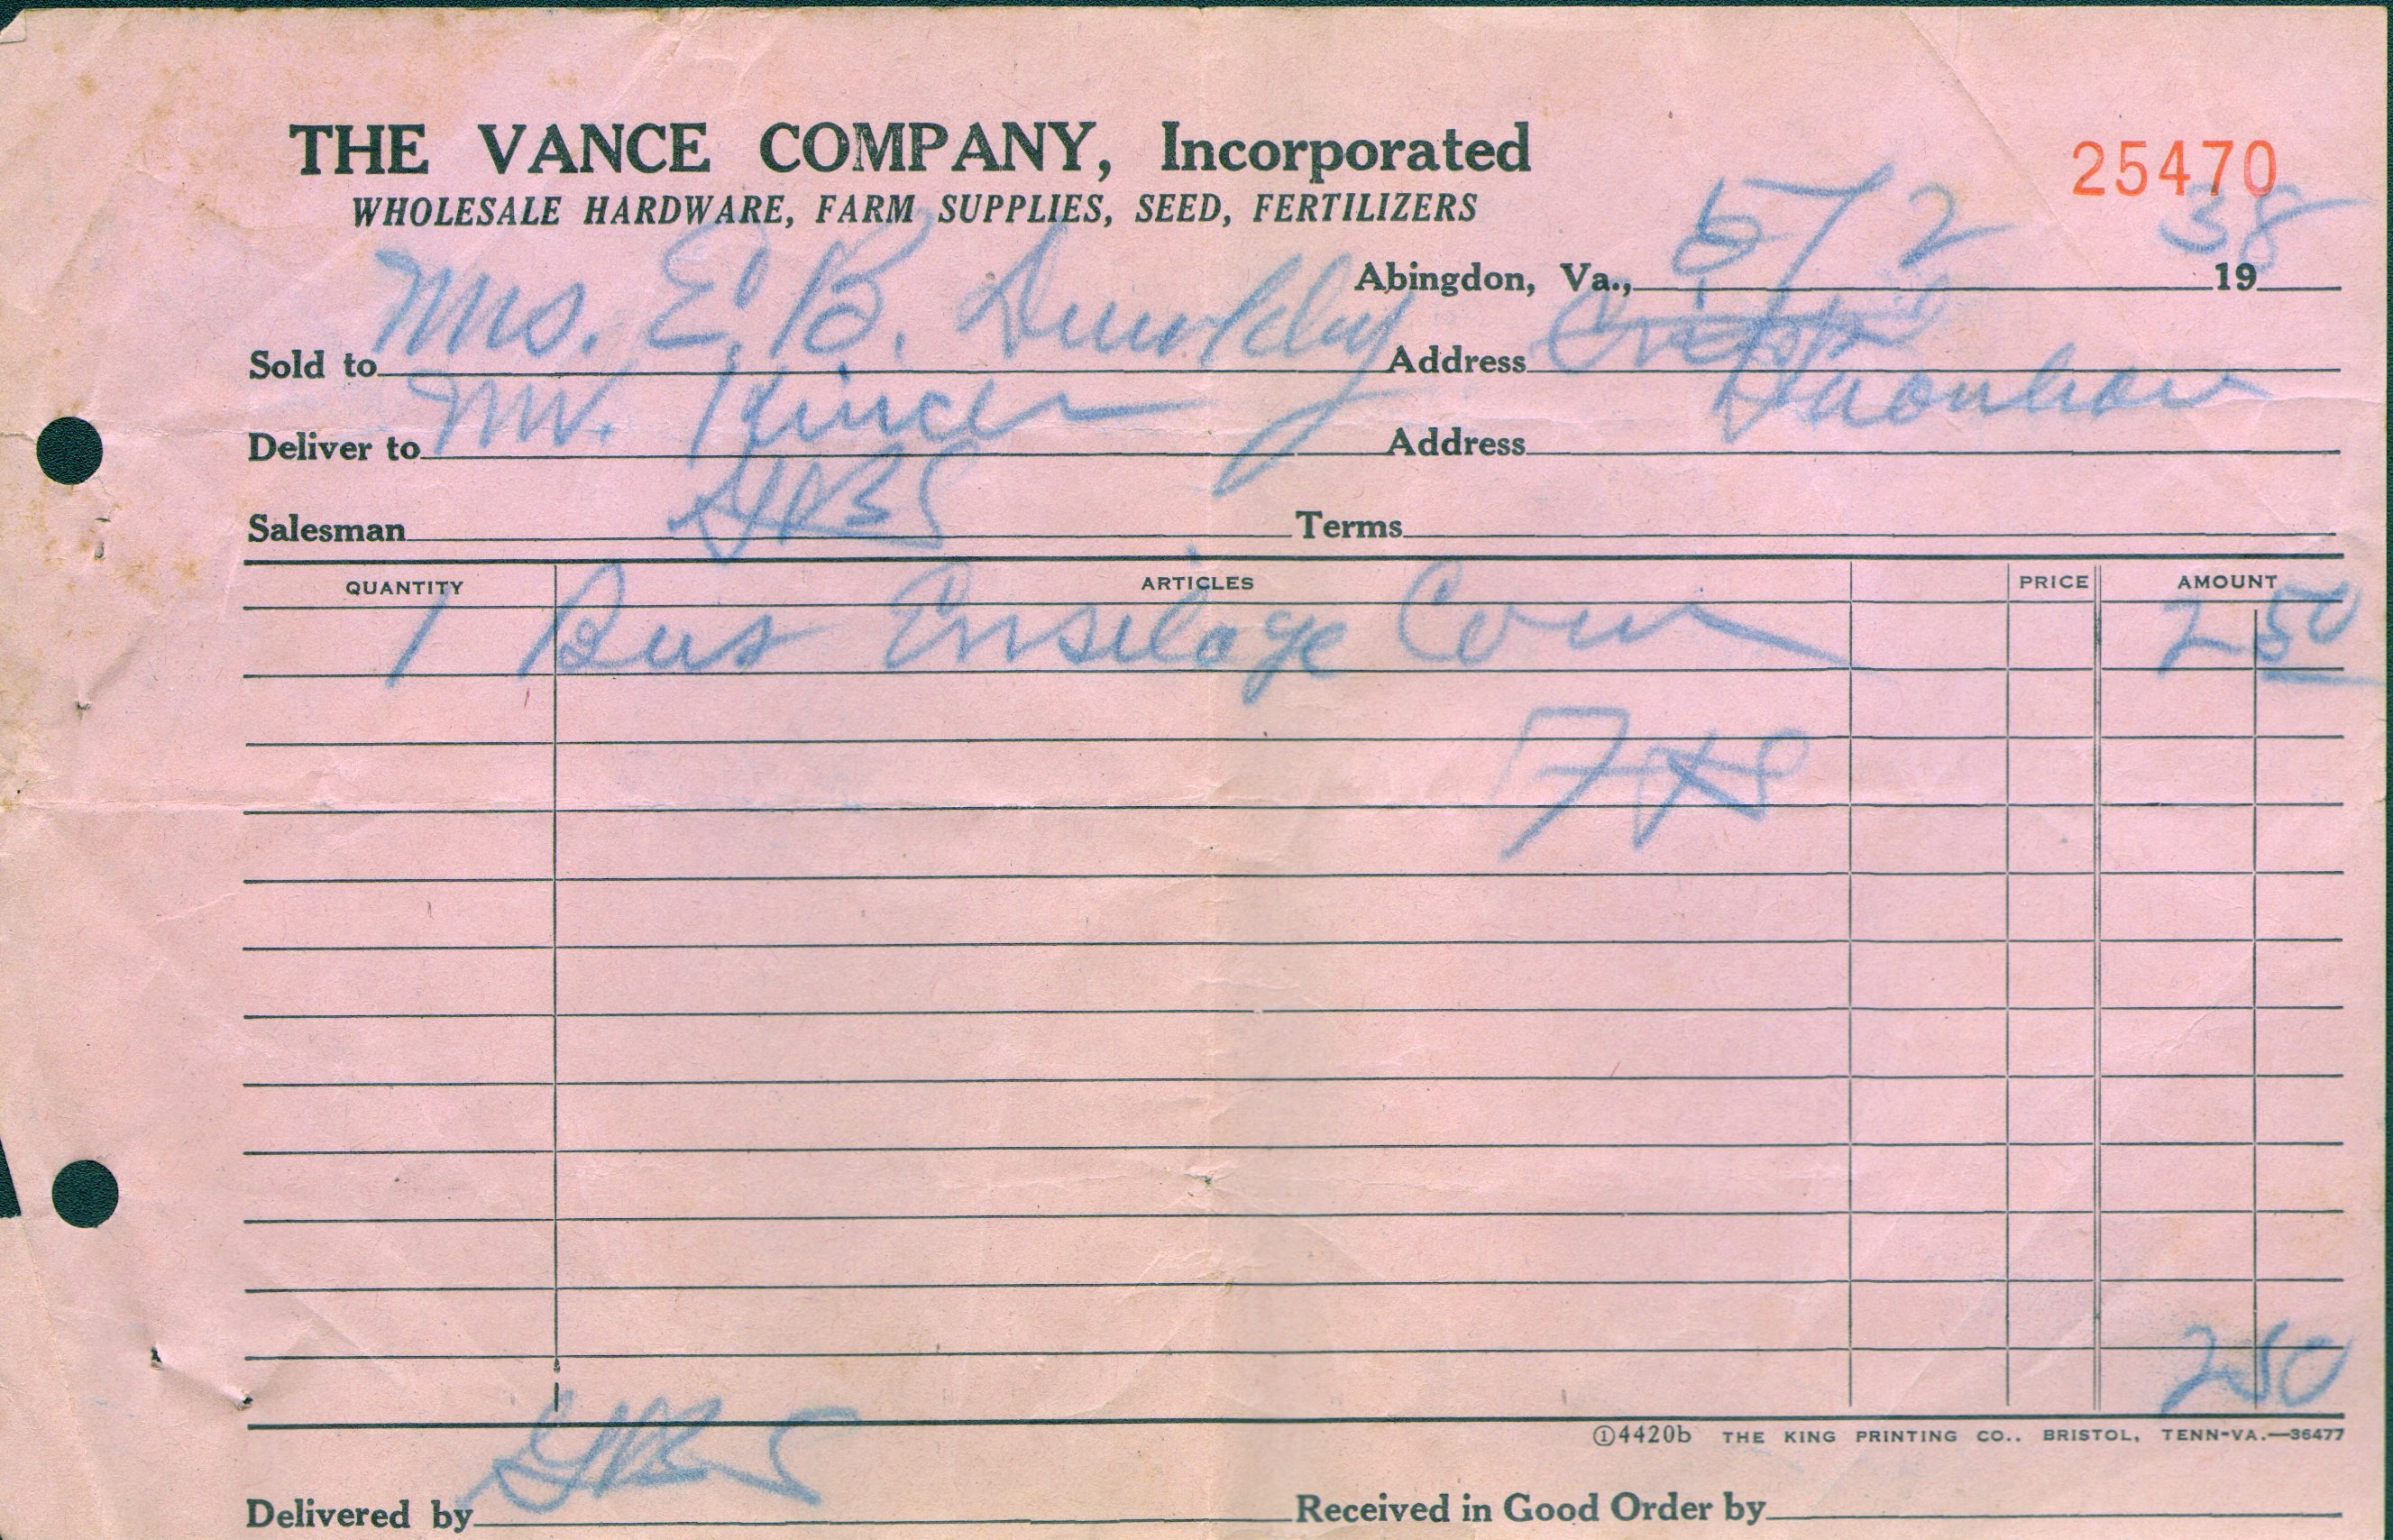 THE VANCE COMPANY, Incorporated
25470
WHOLESALE HARDWARE, FARM SUPPLIES, SEED, FERTILIZERS
Abingdon, Va., 5/2 1938
Sold to Mrs. E. B. Address
Deliver to Mr. Kincer Address
Salesman Terms
QUANTITY ARTICLES PRICE AMOUNT
1 Bus Ensilage Corn 2 50
2 50
①4420b THE KING PRINTING CO., BRISTOL, TENN-VA.—36477
Delivered by Received in Good Order by